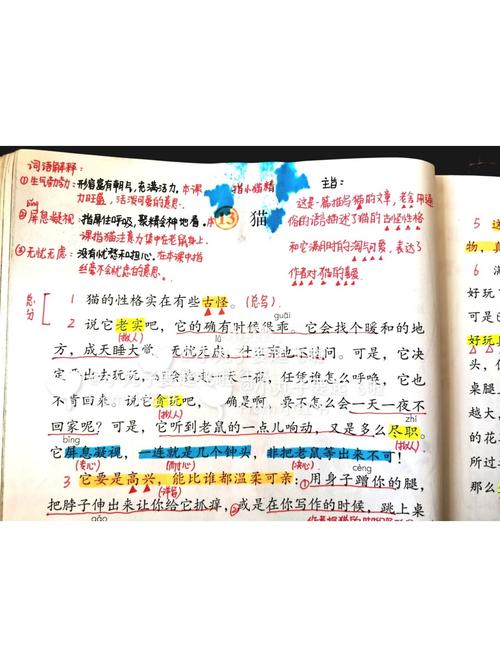 词语解释:
①生气勃勃:形容富有朝气,充满活力。本课指小猫精
力旺盛,活泼可爱的意思。
bǐng
②屏息凝视:指屏住呼吸,聚精会神地看。本
课指猫注意力集中在老鼠身上。
③无忧无虑:没有忧愁和担心。在本课中指
丝毫不会忧虑的意思。
13 猫
主旨:
这是一篇描写猫的文章,老舍用通
俗的语言描述了猫的古怪性格
和它满月时的淘气可爱,表达了
作者对猫的喜爱
总
分
1 猫的性格实在有些古怪。(总写)
guāi
2 说它老实吧,它的确有时候很乖。它会找个暖和的地
(拟人)
lǜ
方,成天睡大觉,无忧无虑,什么事也不过问。可是,它决
定要出去玩玩,就会出走一天一夜,任凭谁怎么呼唤,它也
不肯回来。说它贪玩吧,的确是啊,要不怎么会一天一夜不
(拟人)
zhí
回家呢?可是,它听到老鼠的一点儿响动,又是多么尽职。
bǐng
(拟人)
它屏息凝视,一连就是几个钟头,非把老鼠等出来不可!
(专心) (耐心) (决心)
3 它要是高兴,能比谁都温柔可亲:①用身子蹭你的腿,
cèng
把脖子伸出来让你给它抓痒,②或是在你写作的时候,跳上桌
gǎo
5 这
物,真
6 满
好玩
可是
好玩具
头,
便
越大
的花
所
那么